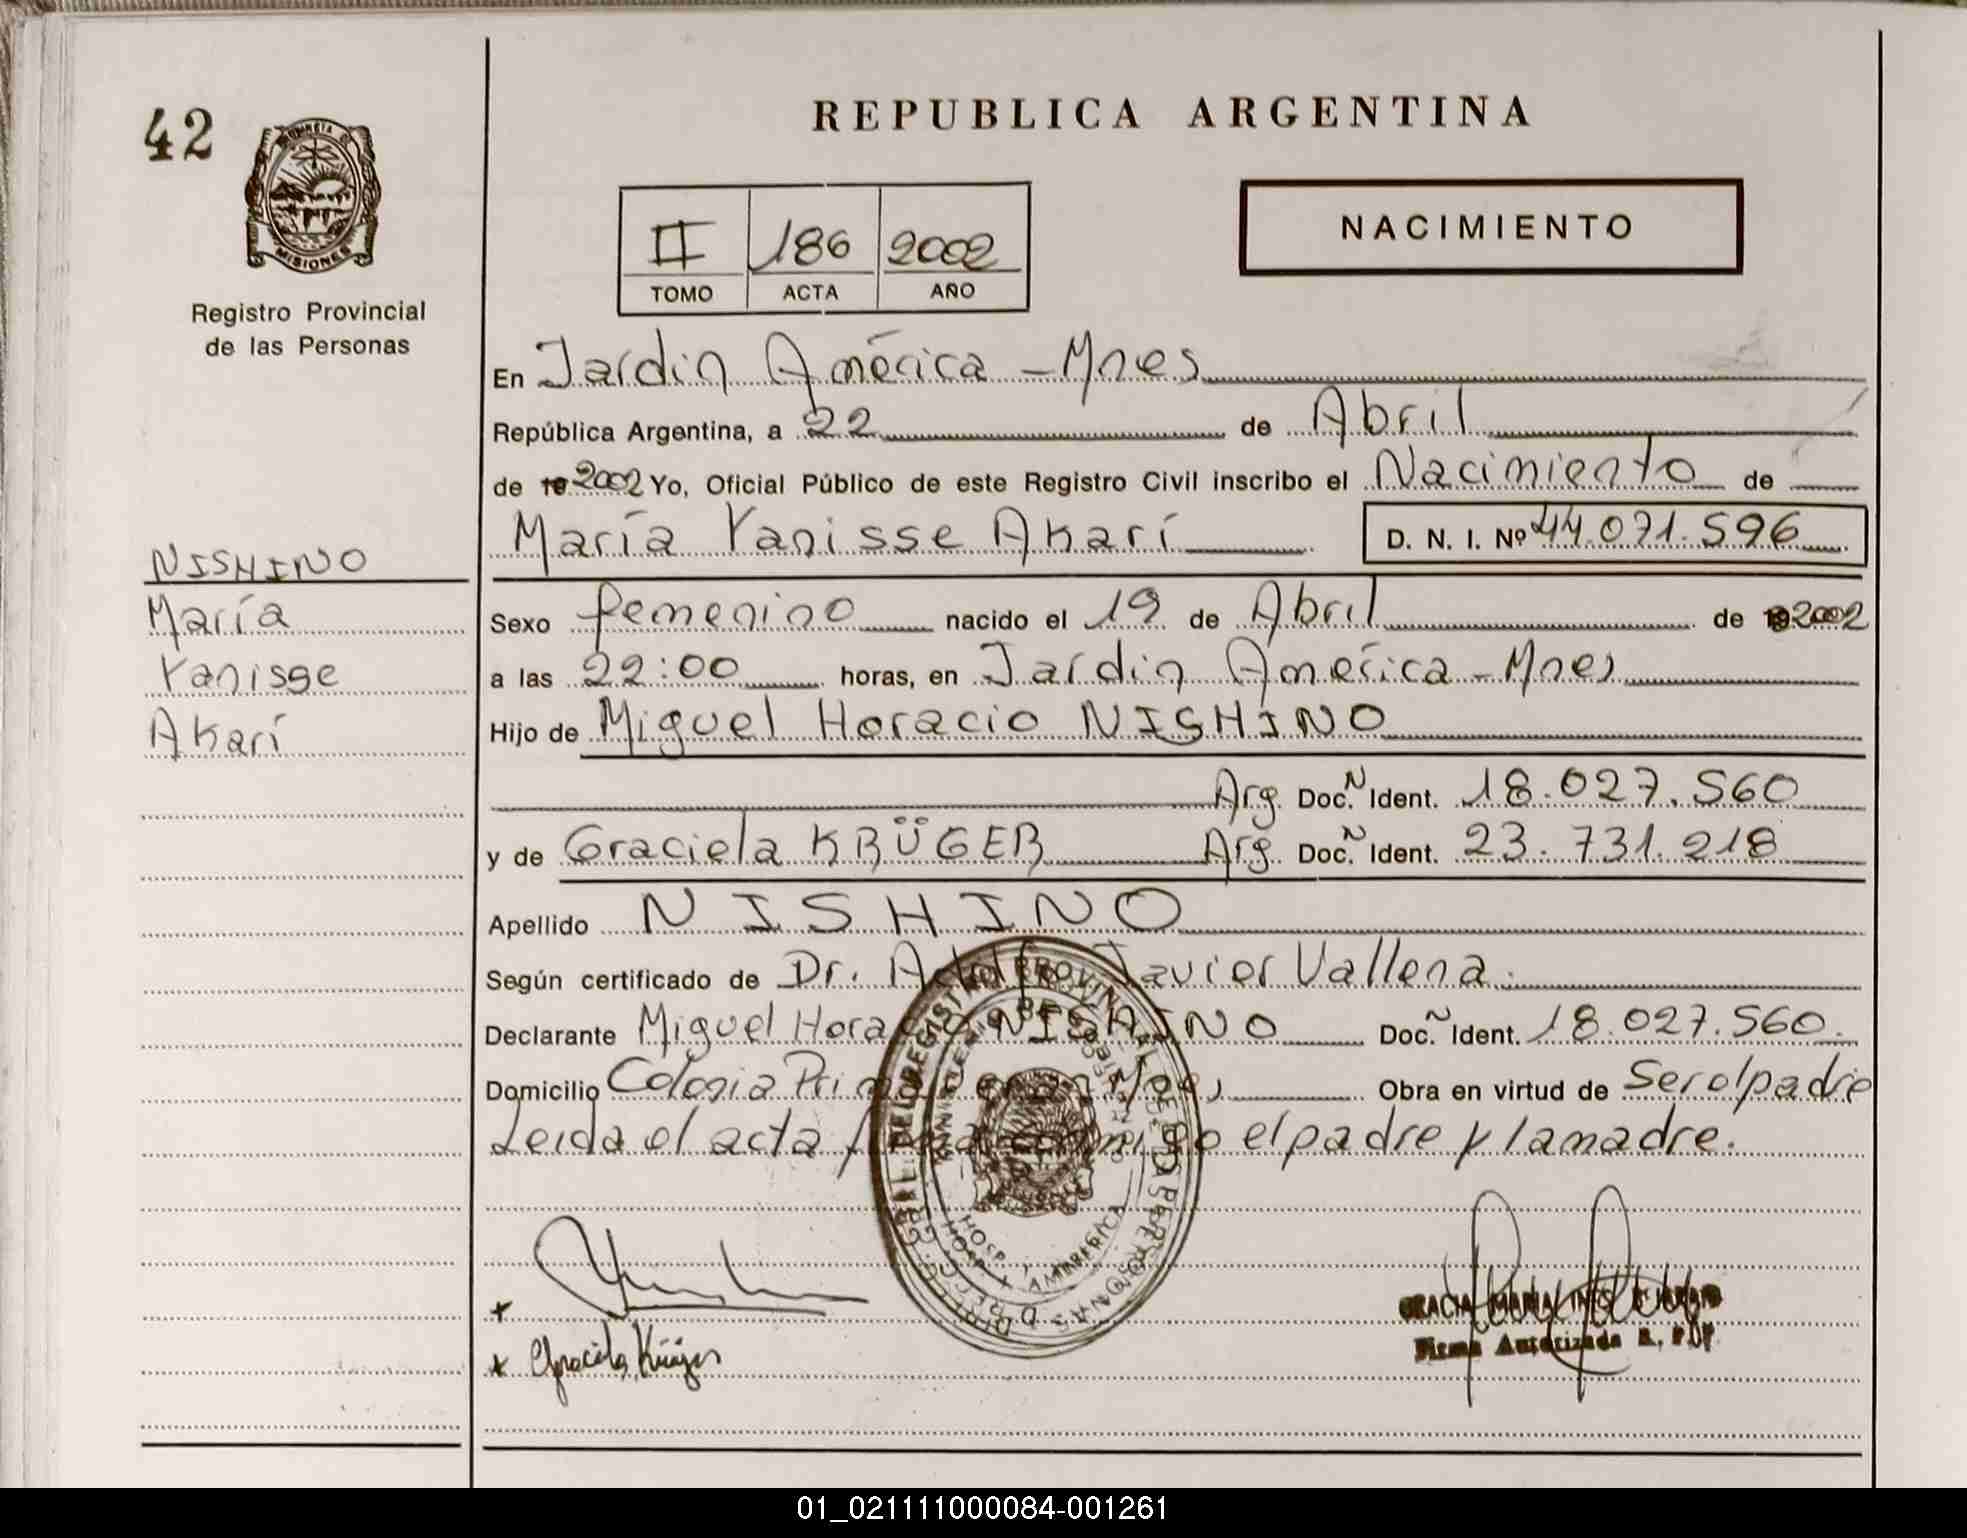 42
PROVINCIA DE
MISIONES
Registro Provincial
de las Personas
REPUBLICA ARGENTINA
II 186 2002
TOMO ACTA AÑO
NACIMIENTO
En Jardin América - Mnes
República Argentina, a 22 de Abril
de 19 2002 Yo, Oficial Público de este Registro Civil inscribo el Nacimiento de
María Yanisse Akarí D. N. I. Nº 44.071.596
NISHINO
María
Yanisse
Akarí
Sexo femenino nacido el 19 de Abril de 2002
a las 22:00 horas, en Jardin América - Mnes
Hijo de Miguel Horacio NISHINO
Arg. Doc. N Ident. 18.027.560
y de Graciela KRÜGER Arg. Doc. N Ident. 23.731.218
Apellido NISHINO
Según certificado de Dr. Javier Vallena.
Declarante Miguel Horacio NISHINO Doc. N Ident. 18.027.560.
Domicilio Colonia Mnes Obra en virtud de Ser el padre
Leída el acta el padre y la madre.
HOSP.
x
x Graciela Krüger
Firma Autorizada R. P. DP.
01_021111000084-001261